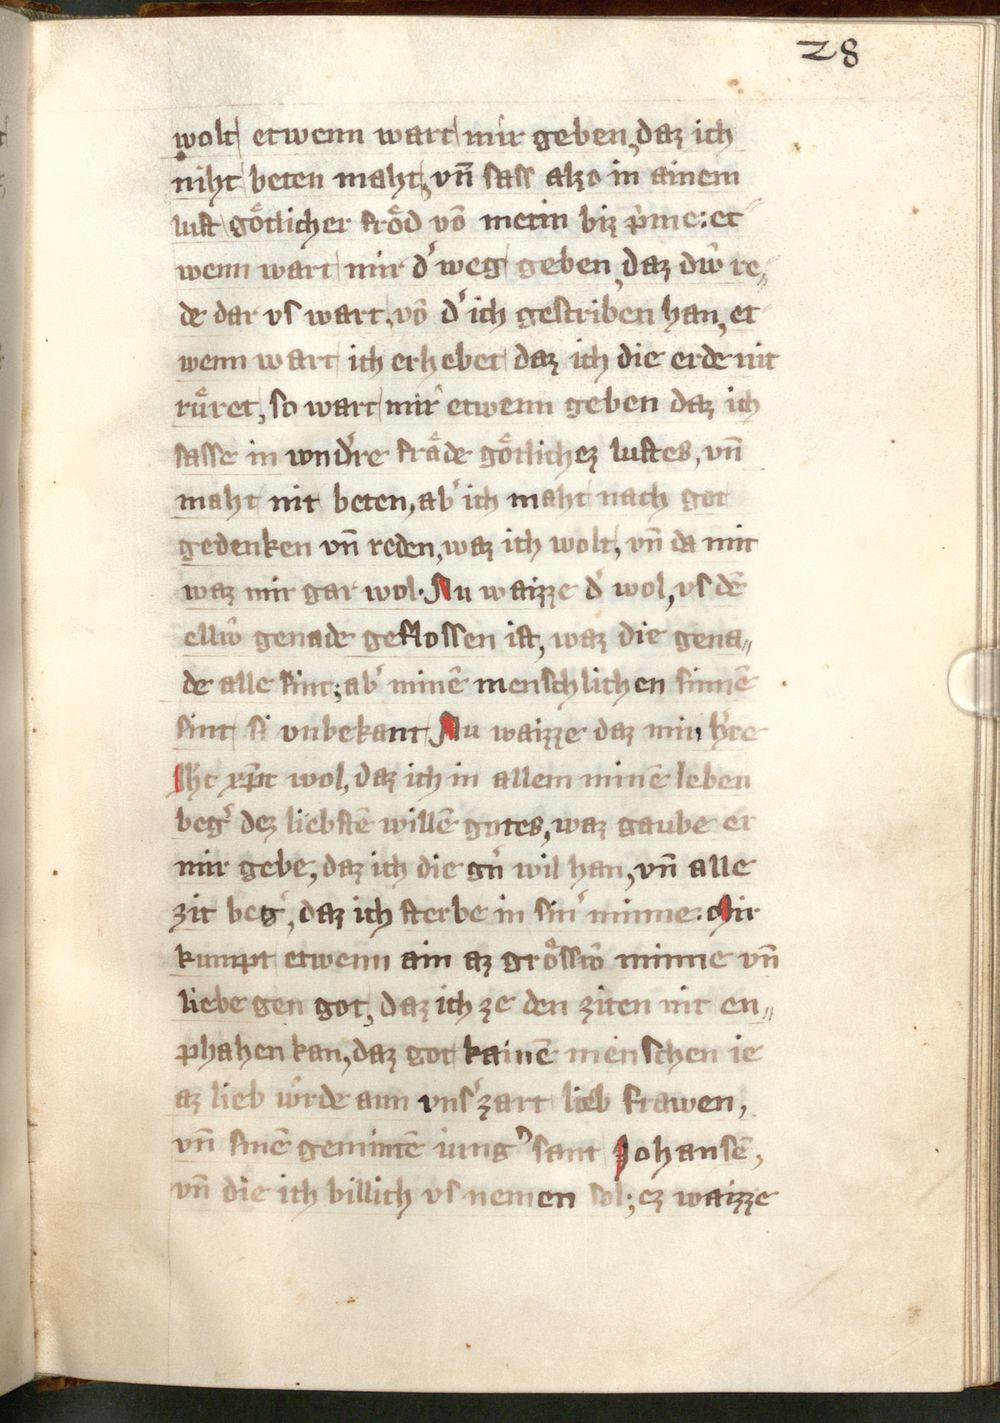 28
wolt etwenn wart mir geben, daz ich
niht beten maht, vn̄ sass alzo in ainem
lust goͤtlicher froͤd vō metin biz p̄me: et⸗
wenn wart mir dˀ weg geben, daz diw̄ re⸗
de dar vs wart, vō dˀ ich gescriben han, et
wenn wart ich erhebet daz ich die erde nit
ruͤret, so wart mir etwenn geben daz ich
sasse in wndˀre fraͤde goͤtlichez lustes, vn̄
maht nit beten, abˀ ich maht nach got
gedenken vn̄ reden, waz ich wolt, vn̄ da mit
waz mir gar wol. Nu waizze dˀ wol, vs dē
elliw̄ genade geflossen ist, waz die gena⸗
de alle sint; abˀ minē menschlichen sinnē
sint si vnbekant Nu waizze daz min hˀre
Ihc xp̄c wol, daz ich in allem minē leben
begˀ dez liebstē willē gotes, waz gaube er
mir gebe, daz ich die gn̄ wil han, vn̄ alle
zit begˀ, daz ich sterbe in sinˀ minne: Mir
kumpt etwenn ain az groͤssiw̄ minne vn̄
liebe gen got, daz ich ze den ziten nit en⸗
phahen kan, daz got kainē menschen ie
az lieb wrde ann vnsˀ zart lieb frawen,
vn̄ sinē gemintē iungˀ sant Johansē,
vn̄ die ich billich vs nemen sol; ez waizze